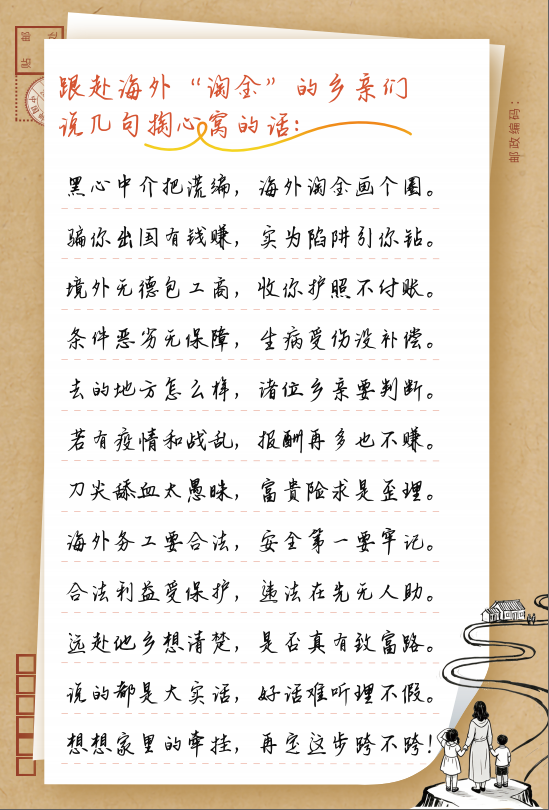 跟赴海外“淘金”的乡亲们
说几句掏心窝的话：
黑心中介把谎编，海外淘金画个圈。
骗你出国有钱赚，实为陷阱引你钻。
境外无德包工商，收你护照不付账。
条件恶劣无保障，生病受伤没补偿。
去的地方怎么样，诸位乡亲要判断。
若有疫情和战乱，报酬再多也不赚。
刀尖舔血太愚昧，富贵险求是歪理。
海外务工要合法，安全第一要牢记。
合法利益受保护，违法在先无人助。
远赴他乡想清楚，是否真有致富路。
说的都是大实话，好话难听理不假。
想想家里的牵挂，再定这步跨不跨！
邮政编码：
贴邮
处